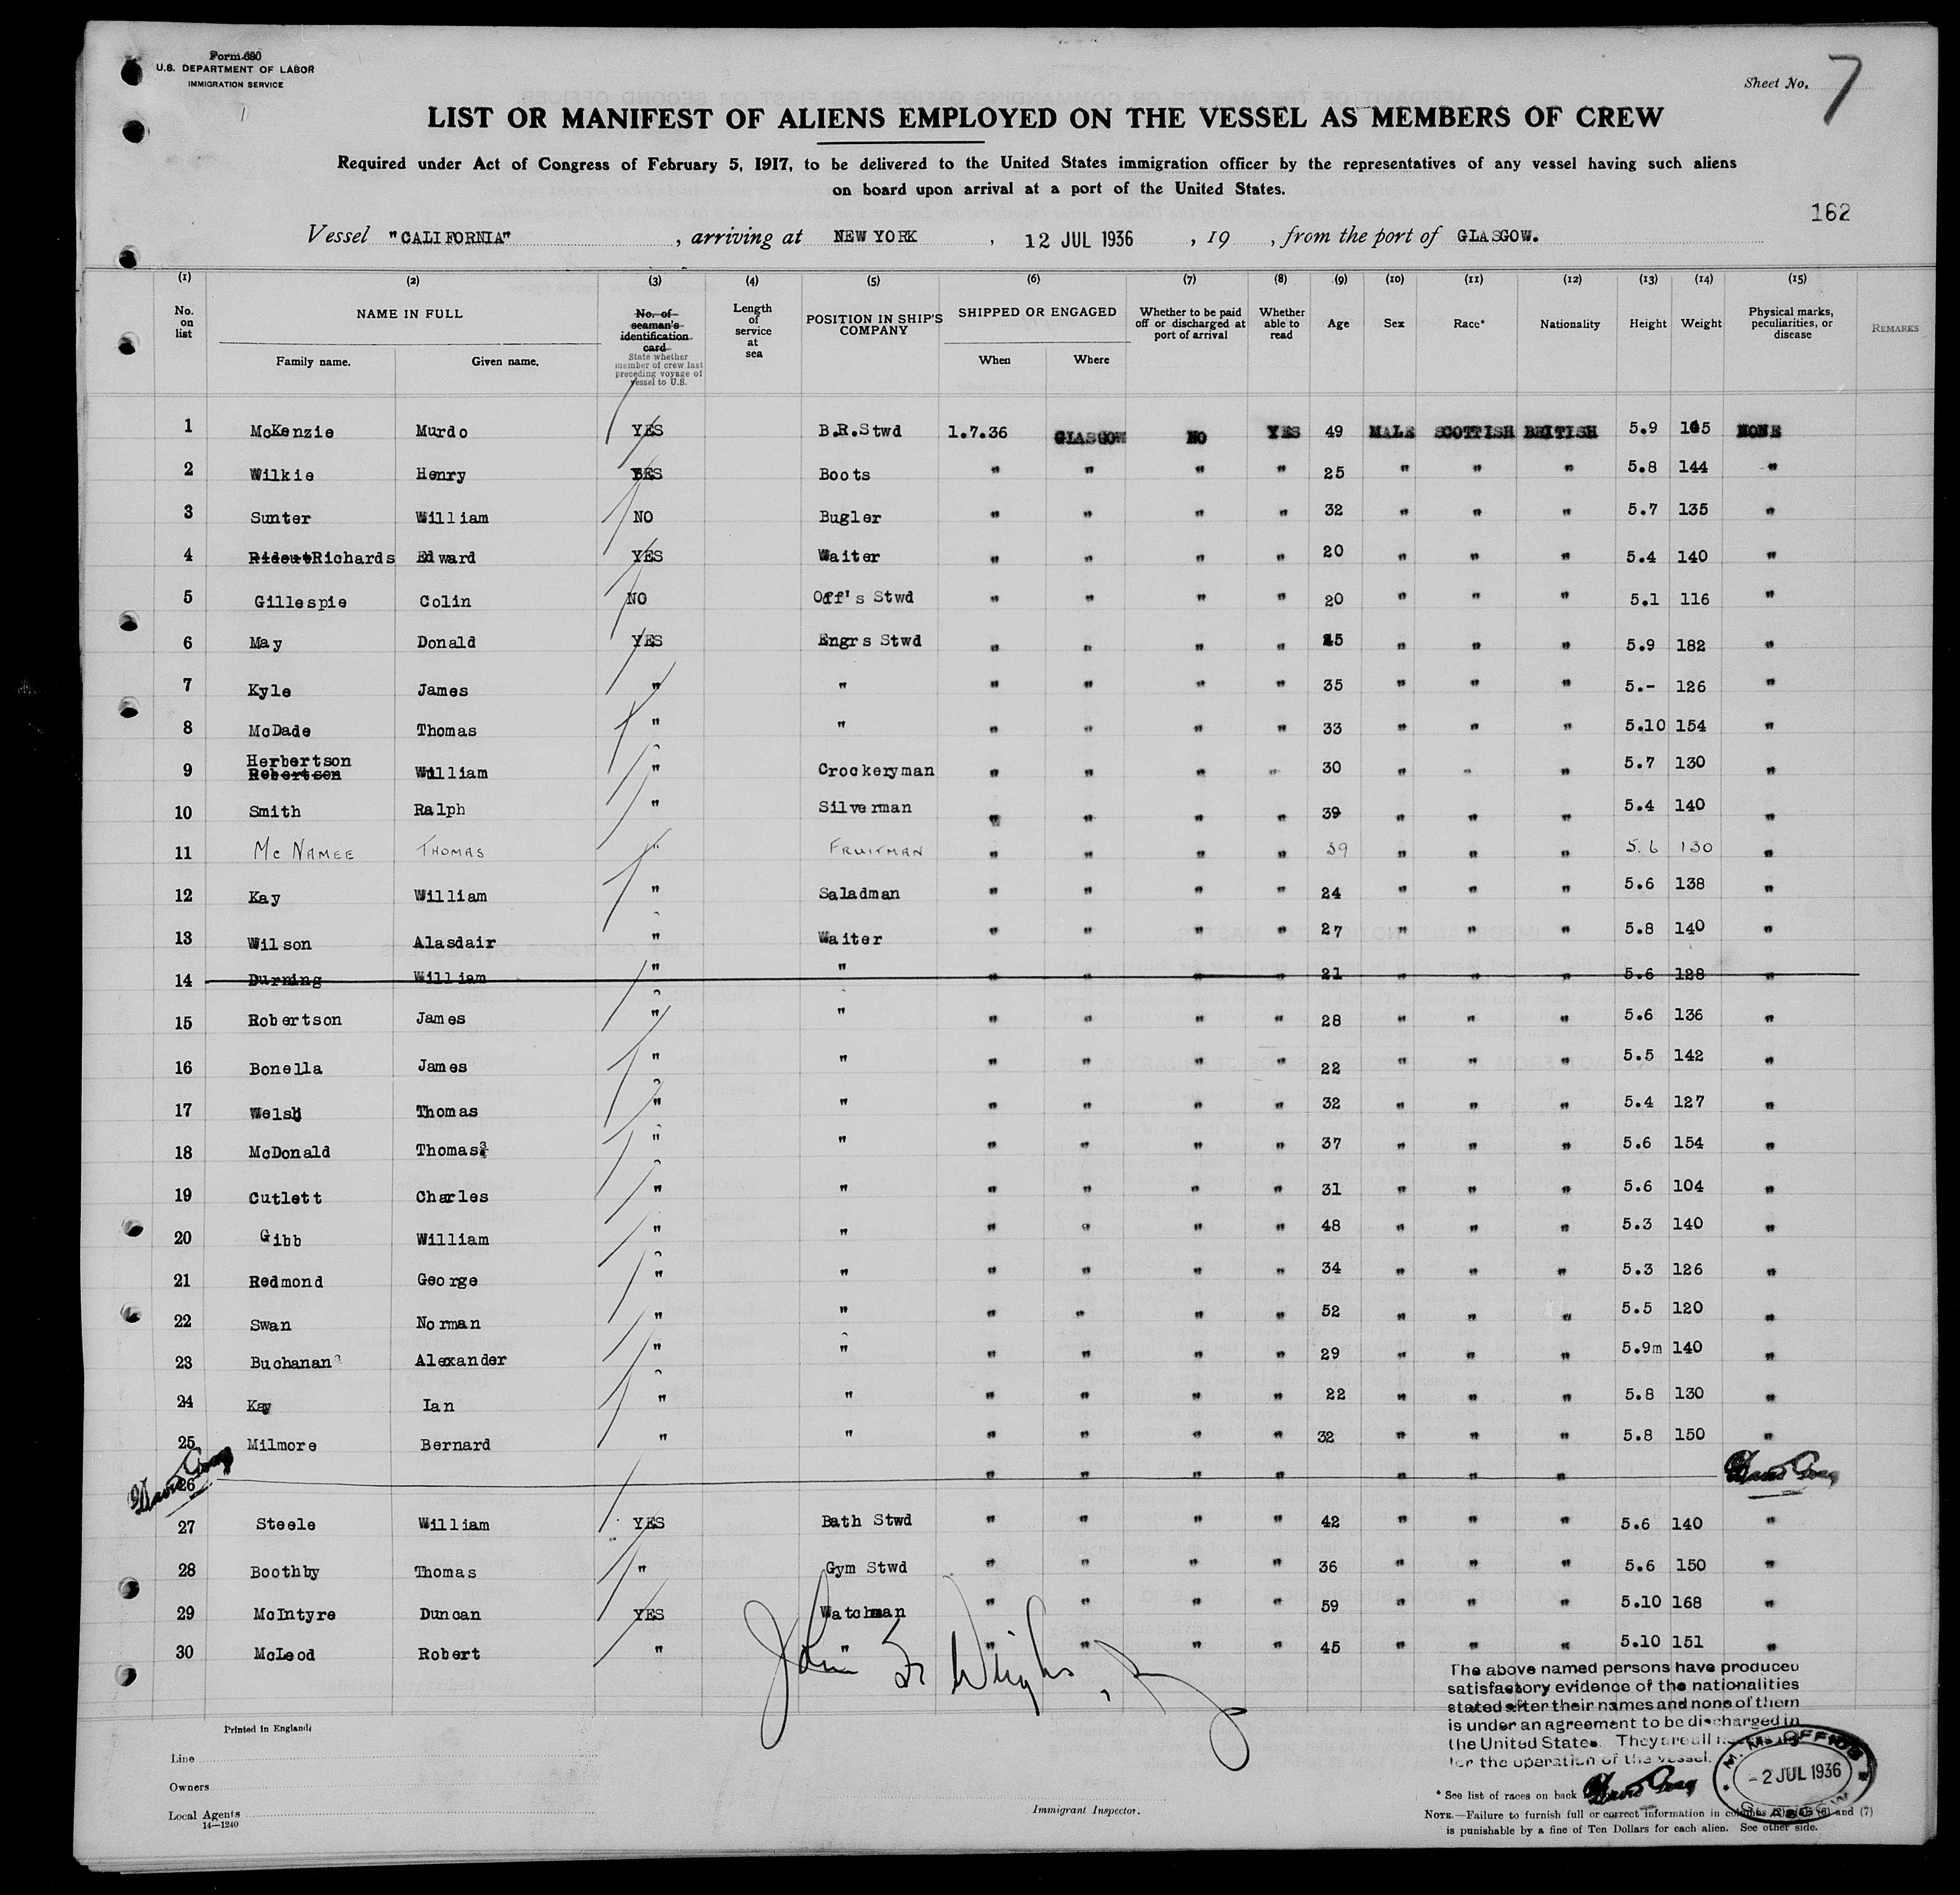 Form 680
U.S. DEPARTMENT OF LABOR
IMMIGRATION SERVICE
Sheet No. 7
LIST OR MANIFEST OF ALIENS EMPLOYED ON THE VESSEL AS MEMBERS OF CREW
Required under Act of Congress of February 5, 1917, to be delivered to the United States immigration officer by the representatives of any vessel having such aliens
on board upon arrival at a port of the United States.
162
Vessel "CALIFORNIA" , arriving at NEW YORK , 12 JUL 1936 , 19 , from the port of GLASGOW.
(1) (2) (3) (4) (5) (6) (7) (8) (9) (10) (11) (12) (13) (14) (15)
No. on list NAME IN FULL Family name. Given name. No. of seaman's identification card State whether member of crew last preceding voyage of vessel to U.S. Length of service at sea POSITION IN SHIP'S COMPANY SHIPPED OR ENGAGED When Where Whether to be paid off or discharged at port of arrival Whether able to read Age Sex Race* Nationality Height Weight Physical marks, peculiarities, or disease REMARKS
1 McKenzie Murdo YES B.R.Stwd 1.7.36 GLASGOW NO YES 49 MALE SCOTTISH BRITISH 5.9 NONE
2 Wilkie Henry YES Boots " " " " 25 " " " 5.8 144 "
3 Sunter William NO Bugler " " " " 32 " " " 5.7 135 "
4 Rideut Richards Edward YES Waiter " " " " 20 " " " 5.4 140 "
5 Gillespie Colin NO Off's Stwd " " " " 20 " " " 5.1 116 "
6 May Donald YES Engrs Stwd " " " " " " " 5.9 182 "
7 Kyle James " " " " " " 35 " " " 5.- 126 "
8 McDade Thomas " " " " " " 33 " " " 5.10 154 "
9 Herbertson Robertson William " Crockeryman " " " " 30 " " " 5.7 130 "
10 Smith Ralph " Silverman " " " " 39 " " " 5.4 140 "
11 Mc NAMEE THOMAS " FRUITMAN " " " " 39 " " " 5.6 130 "
12 Kay William " Saladman " " " " 24 " " " 5.6 138 "
13 Wilson Alasdair " Waiter " " " " 27 " " " 5.8 140 "
14 Durning William " " " " " " 21 " " " 5.6 128 "
15 Robertson James " " " " " " 28 " " " 5.6 136 "
16 Bonella James " " " " " " 22 " " " 5.5 142 "
17 Welsh Thomas " " " " " " 32 " " " 5.4 127 "
18 McDonald Thomas " " " " " " 37 " " " 5.6 154 "
19 Cutlett Charles " " " " " " 31 " " " 5.6 104 "
20 Gibb William " " " " " " 48 " " " 5.3 140 "
21 Redmond George " " " " " " 34 " " " 5.3 126 "
22 Swan Norman " " " " " " 52 " " " 5.5 120 "
23 Buchanan Alexander " " " " " " 29 " " " 5.9m 140 "
24 Kay Ian " " " " " " 22 " " " 5.8 130 "
25 Milmore Bernard " " " " " " 32 " " " 5.8 150 "
26 " " " " " "
27 Steele William YES Bath Stwd " " " " 42 " " " 5.6 140 "
28 Boothby Thomas " Gym Stwd " " " " 36 " " " 5.6 150 "
29 McIntyre Duncan YES Watchman " " " " 59 " " " 5.10 168 "
30 McLeod Robert " " " " " " 45 " " " 5.10 151 "
The above named persons have produced
satisfactory evidence of the nationalities
stated after their names and none of them
is under an agreement to be discharged in
the United States. They are all
for the operation of the vessel.
M. M. OFFICE
- 2 JUL 1936
GLASGOW
Printed in England
Line
Owners
Local Agents
14—1240
Immigrant Inspector.
* See list of races on back
NOTE.—Failure to furnish full or correct information in columns and (7)
is punishable by a fine of Ten Dollars for each alien. See other side.